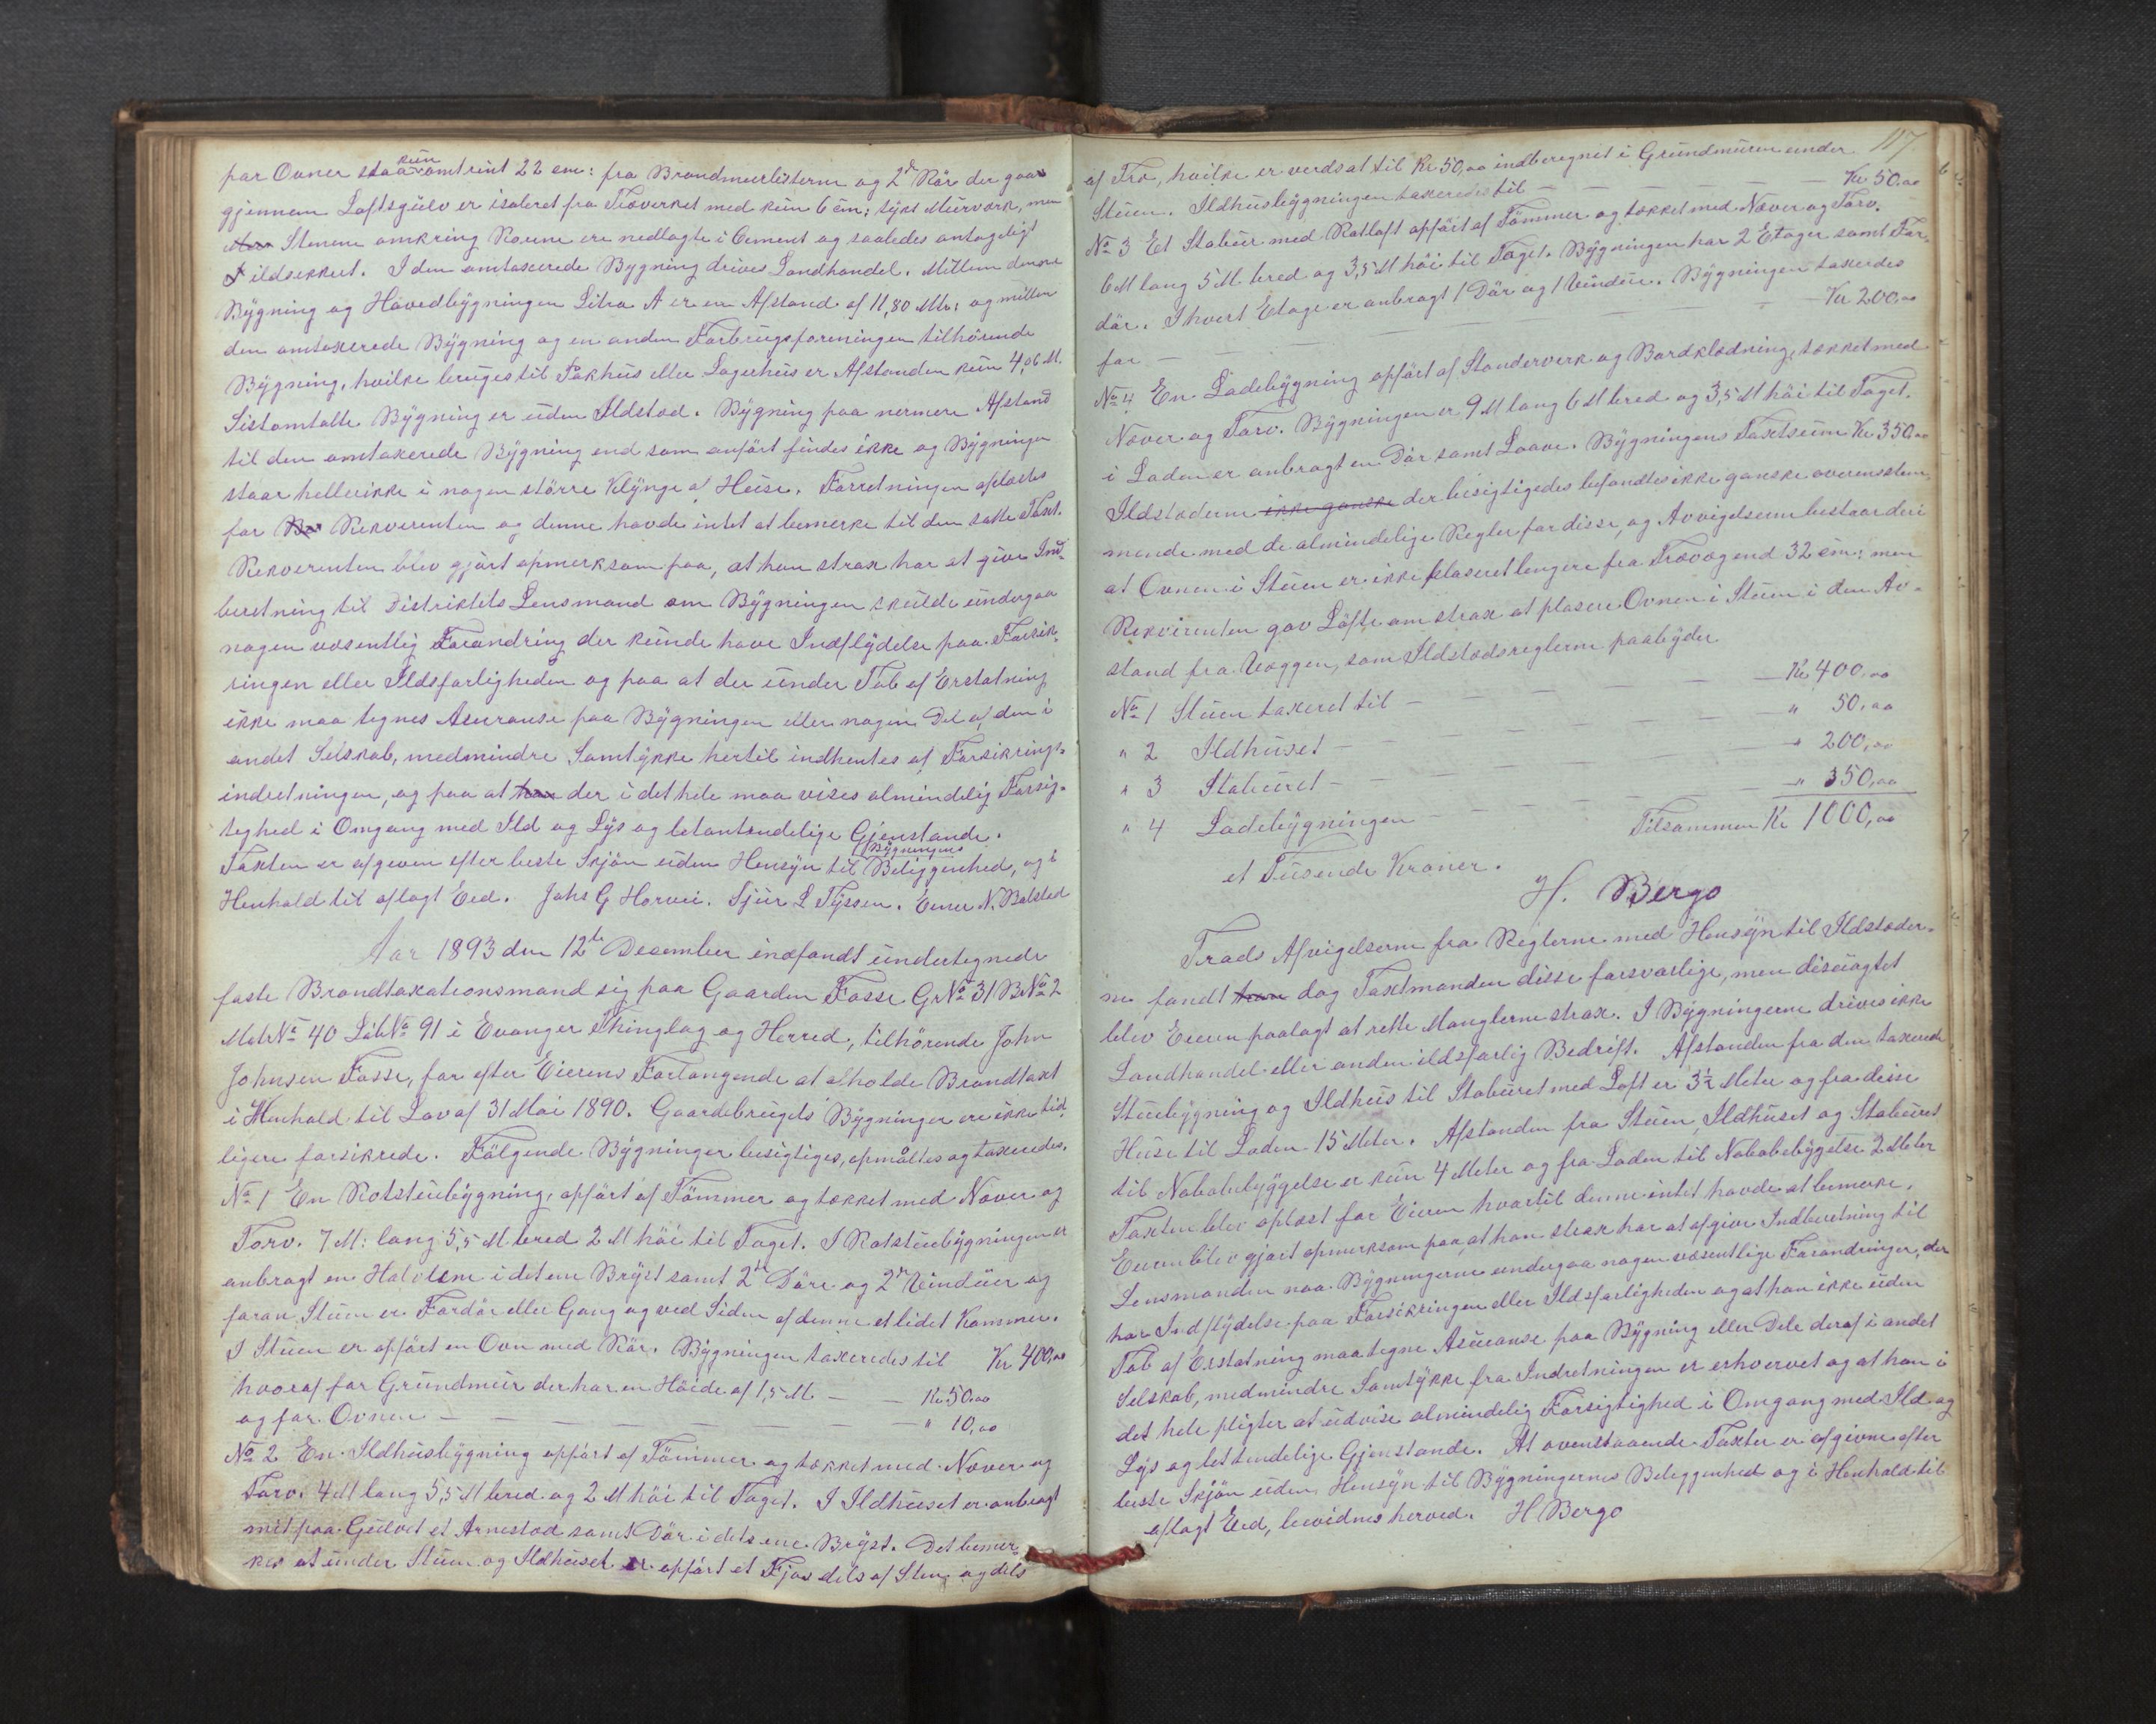 par Ovner staa kun omtrint 22 cm: fra Brandmurlisterne og 2de Rör der gaar
gjennem Loftsgulv er isoleret fra Træverket med kun 6 cm: tykt Murværk, men
Stenene omkring Rörene ere nedlagte i Cement og saaledes antageligt
ildsikkert. I den omtaxerede Bygning drives Landhandel. Mellem denne
Bygning og Hovedbygningen Litra A er en Afstand af 11,80 Mtr: og mellem
den omtaxerede Bygning og en anden Forbrugsforeningen tilhörende
Bygning, hvilke bruges til Pakhus eller Lagerhus er Afstanden kun 4,06 M.
Sistomtalte Bygning er uden Ildsted. Bygning paa nermere Afstand
til den omtaxerede Bygning end som anfört findes ikke og Bygningen
staar hellerikke i nogen större Klynge af Huse. Forretningen oplæstes
for Rekverenten og denne havde intet at bemerke til den satte Taxt.
Rekverenten blev gjort opmerksom paa, at han strax har at give Ind-
beretning til Distriktets Lensmand om Bygningen skulde undergaa
nogen væsentlig Forandring der kunde have Indflydelse paa Forsik-
ringen eller Ildsfarligheden og paa at der under Tab af Erstatning
ikke maa tegnes Asuranse paa Bygningen eller nogen Del af den i
andet Selskab, medmindre Samtykke hertil indhentes af Forsikrings-
indretningen, og paa at der i det hele maa vises almindelig Forsig-
tighed i Omgang med Ild og Lys og letantendelige Gjenstande.
Taxten er afgiven efter beste Skjön uden Hensyn til Bygningens Beliggenhed, og i
Henhold til aflagt Eed. Johs G Horvei. Sjur L Tyssen. Einer N. Bolstad
Aar 1893 den 12te Desember indfandt undertegnede
faste Brandtaxationsmand sig paa Gaarden Fosse GrNo 31 BNo 2
MatrNo 40 LöbNo 91 i Evanger Thinglag og Herred, tilhörende John
Johnsen Fosse, for efter Eierens Forlangende at afholde Brandtaxt
i Henhold til Lov af 31 Mai 1890. Gaardsbrugets Bygninger ere ikke tid
ligere forsikrede. Fölgende Bygninger besigtiges, opmåltes og taxeredes.
No 1 En Rotstuebygning, opfört af Tömmer og tækket med Næver og
Torv. 7 M: lang 5,5 M bred 2 M höi til Taget. I Rotstuebygningen er
anbragt en Halvlem i det ene Bryst samt 2de Döre og 2de Vinduer og
foran Stuen er Fordör eller Gang og ved Siden af denne et lidet Kammer.
I Stuen er opfört en Ovn med Rör. Bygningen taxeredes til Kr 400,00
hvoraf for Grundmur der har en Höide af 1,5 M. — — Kr. 50,00
og for Ovnen — — — — — — — " 10,00
No 2 En Ildhusbygning opfört af Tömmer og tækket med Næver og
Torv. 4 M lang 5,5 M bred og 2 M höi til Taget. I Ildhuset er anbragt
mit paa Gulvet et Arnested samt Dör i dets ene Bryst. Det bemer-
kes at under Stuen og Ildhuset er opfört et Fjøs dels af Sten og dels
117
af Træ, hvilke er verdsat til Kr. 50,00 indberegnet i Grundmuren under
Stuen. Ildhusbygningen taxeredes til — — — — — Kr 50,00
No 3 Et Stabur med Rotloft opfört af Tömmer og tækket med Næver og Torv.
6 M lang 5 M bred og 3,5 M höi til Taget. Bygningen har 2 Etager samt For-
dör. I hvert Etage er anbragt 1 Dör og 1 Vindue. Bygningen taxeredes
for — — — — — — — Kr 200,00
No 4 En Ladebygning opfört af Standerverk og Bordklædning, tækket med
Næver og Torv. Bygningen er 9 M lang 6 M bred og 3,5 M höi til Taget.
i Laden er anbragt en Dör samt Laave. Bygningens Taxtsum Kr 350,00
Ildstederne ikke ganske der besigtigedes befandtes ikke ganske overensstem-
mende med de almindelige Regler for disse, og Avvigelserne bestaar deri
at Ovnen i Stuen er ikke plaseret lengere fra Trævæg end 32 cm: men
Rekvirenten gav Löfte om strax at plasere Ovnen i Stuen i den Av-
stand fra Væggen, som Ildstedsreglerne paabyder
No 1 Stuen taxeret til — — — — — Kr 400,00
" 2 Ildhuset — — — — — " 50,00
" 3 Staburet — — — — — " 200,00
" 4 Ladebygningen — — — — — " 350,00
Tilsammen Kr 1000,00
et Tusende Kroner.
H. Bergo
Trods Afvigelserne fra Reglerne med Hensyn til Ildstæder-
ne fandt dog Taxtmanden disse forsvarlige, men disuagtet
blev Eieren paalagt at rette Manglerne strax. I Bygningerne drives ikke
Landhandel eller anden ildsfarlig Bedrift. Afstanden fra den taxerede
Stuebygning og Ildhus til Staburet med Loft er 3½ Meter og fra disse
Huse til Laden 15 Meter. Afstanden fra Stuen, Ildhuset og Staburet
til Nabobebyggelse er kun 4 Meter og fra Laden til Nabobebygelse 2 Meter
Taxten blev oplæst for Eieren hvortil denne intet havde at bemerke.
Eieren blev gjort opmerksom paa, at han strax har at afgive Indberetning til
Lensmanden naar Bygningerne undergaa nogen væsentlige Forandringer, der
har Indflydelse paa Forsikringen eller Ildsfarligheden og at han ikke uden
Tab af Erstatning maa tegne Asuranse paa Bygning eller Dele deraf i andet
Selskab, medmindre Samtykke fra Indretningen er erhvervet og at han i
det hele pligter at udvise almindelig Forsigtighed i Omgang med Ild og
Lys og lettendelige Gjenstande. At ovenstaaende Taxter er afgivne efter
beste Skjön uden Hensyn til Bygningernes Beleggenhed og i Henhold til
aflagt Eed, bevidnes herved. H Bergo